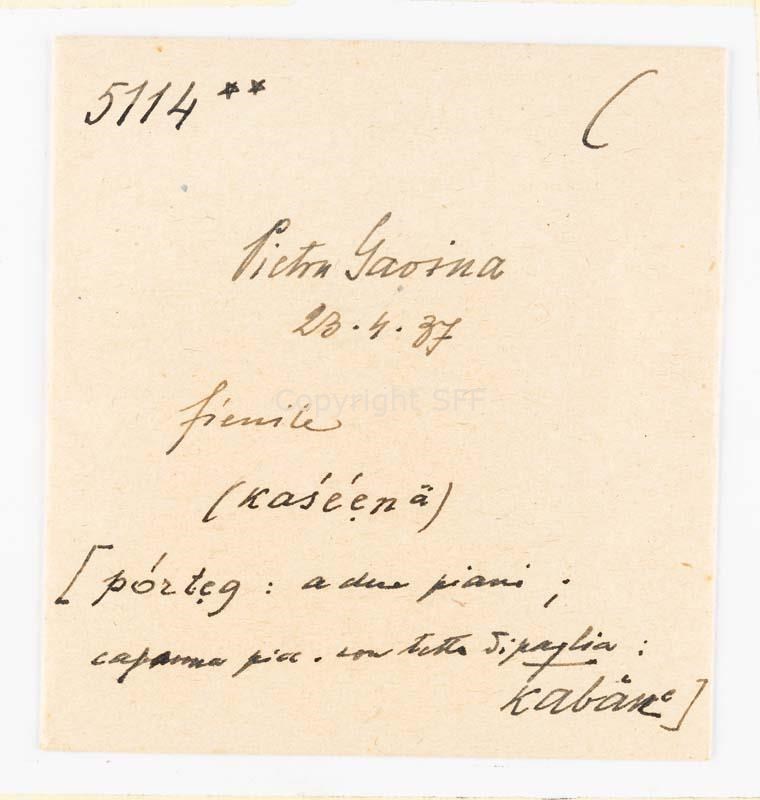 5114 ** (
Pietru Gavina
23.4.37
Copyright SFF
fienile
(kaśéẹnä)
[pórtẹg : a due piani ;
capanna picc. con tetto di paglia :
kabänᵉ]